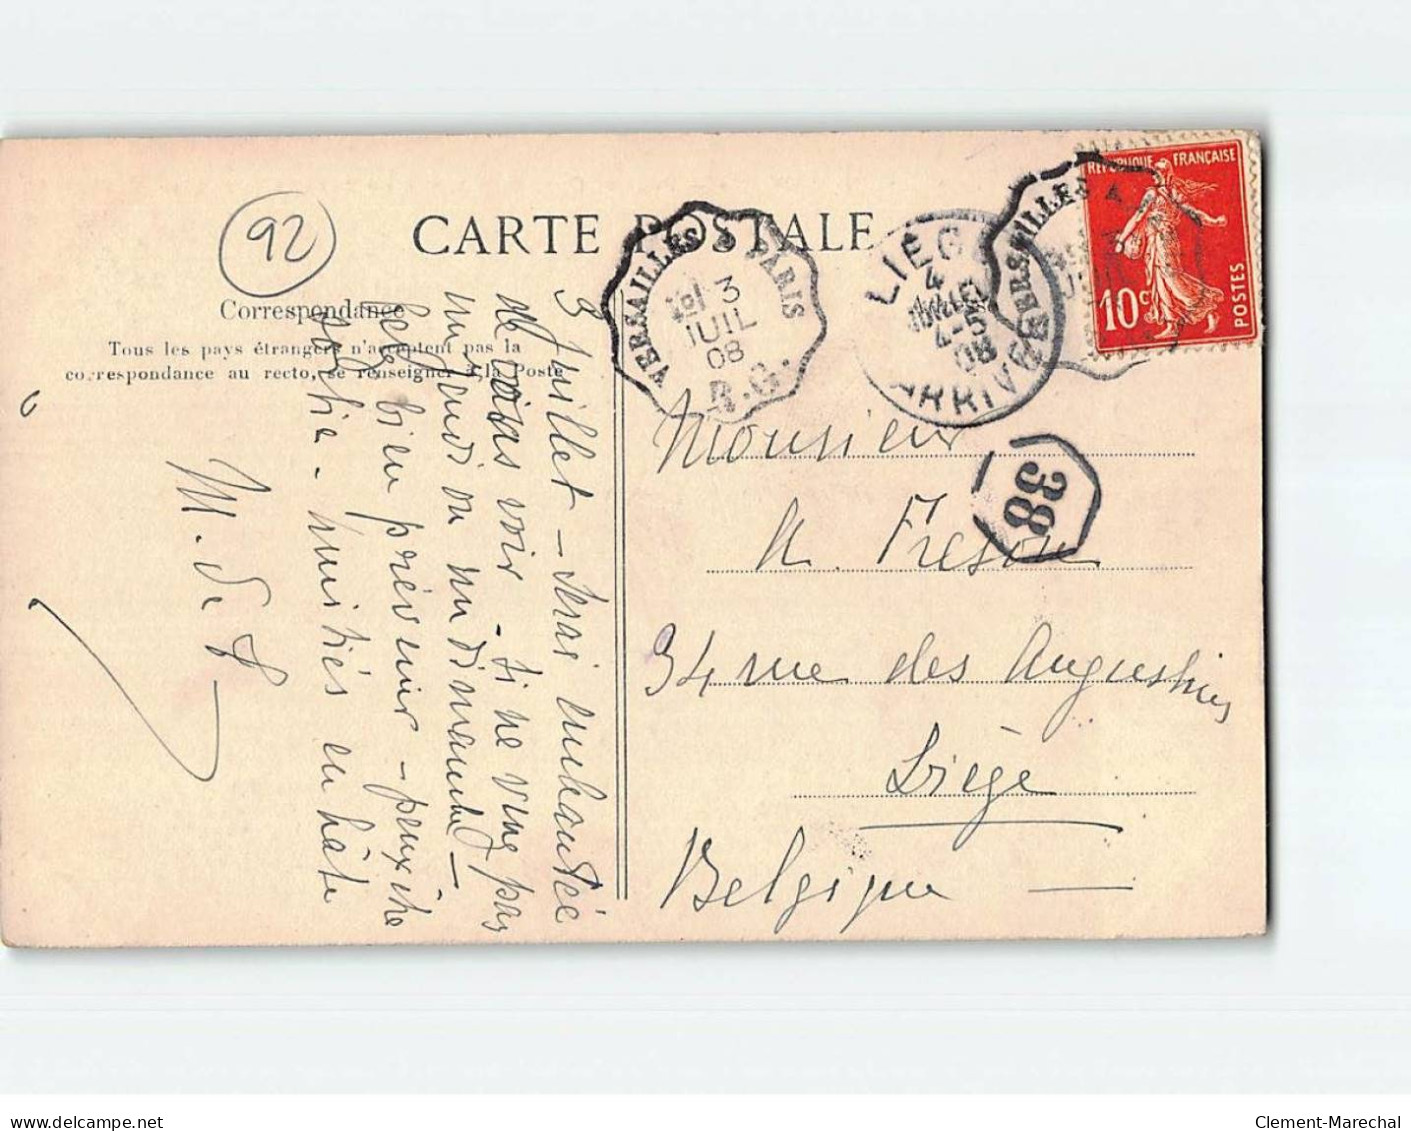 92
CARTE POSTALE
Correspondance
Tous les pays étrangers n'acceptent pas la
correspondance au recto, se renseigner à la Poste
VERSAILLES A PARIS
3
JUIL
08
R.G.
LIEGE
4
JUILLET
4-5
08
ARRIVÉE
VERSAILLES A
REPUBLIQUE FRANÇAISE
10c
POSTES
38
3 Juillet - serai enchantée
de vous voir - si ne vene pas
un jeudi ou un dimanche -
bien prévenir - peux être
sortie - amitiés en hâte
M. de
Monsieur
A. Freson
34 rue des Augustins
Liège
Belgique
delcampe.net
Clement-Marechal